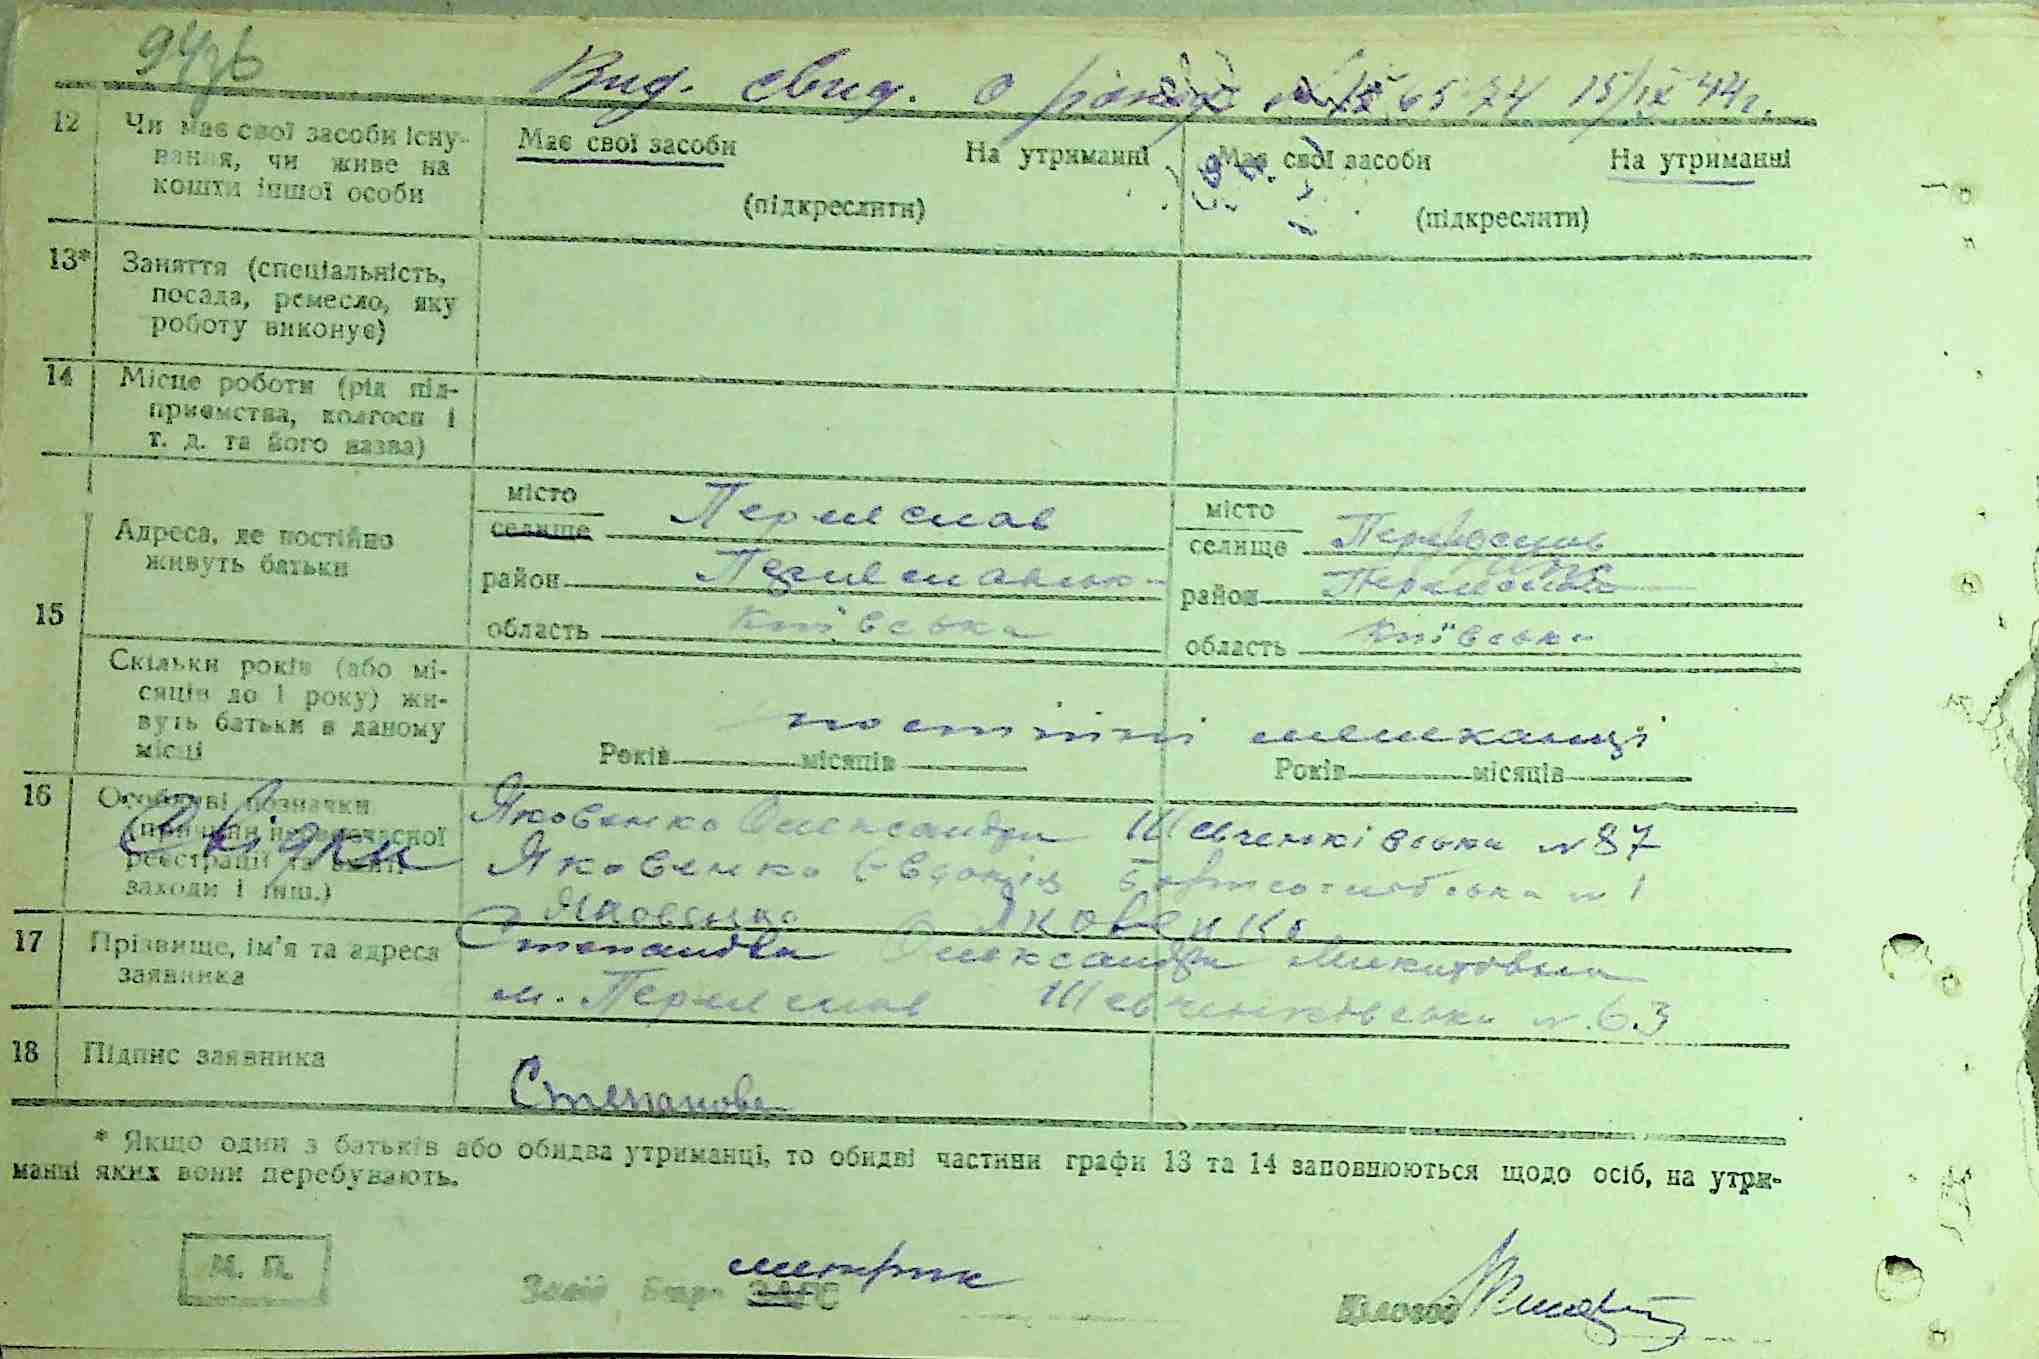 94зв
Вид. свид. о 6574 15/IX 44 г.
12 Чи має свої засоби існу-
вання, чи живе на
кошти іншої особи
Має свої засоби На утриманні
(підкреслити)
Має свої засоби На утриманні
(підкреслити)
13* Заняття (спеціальність,
посада, ремесло, яку
роботу виконує)
14 Місце роботи (рід під-
приємства, колгосп і
т. д. та його назва)
15
Адреса, де постійно
живуть батьки
місто
селище Переяслав
район Переяславсько-
область Київська
місто
селище
район
область Київська
Скільки років (або мі-
сяців до 1 року) жи-
вуть батьки в даному
місці
постійні мешканці
Років місяців
Років місяців
16 Особливі позначки
(причини несвоєчасної
реєстрації та вжиті
заходи і інш.)
Свідки
Яковенко Олександра Шевченківська №87
Яковенко Євдокія №1
Яковенко Яковенко
17 Прізвище, ім'я та адреса
заявника
Степанова Олександра Микитовна
м. Переяслав Шевченківська №.63
18 Підпис заявника
Степанова
* Якщо один з батьків або обидва утриманці, то обидві частини графи 13 та 14 заповнюються щодо осіб, на утри-
манні яких вони перебувають.
М. П.
Зав. Бюро ЗАГС
метрик
Діловод